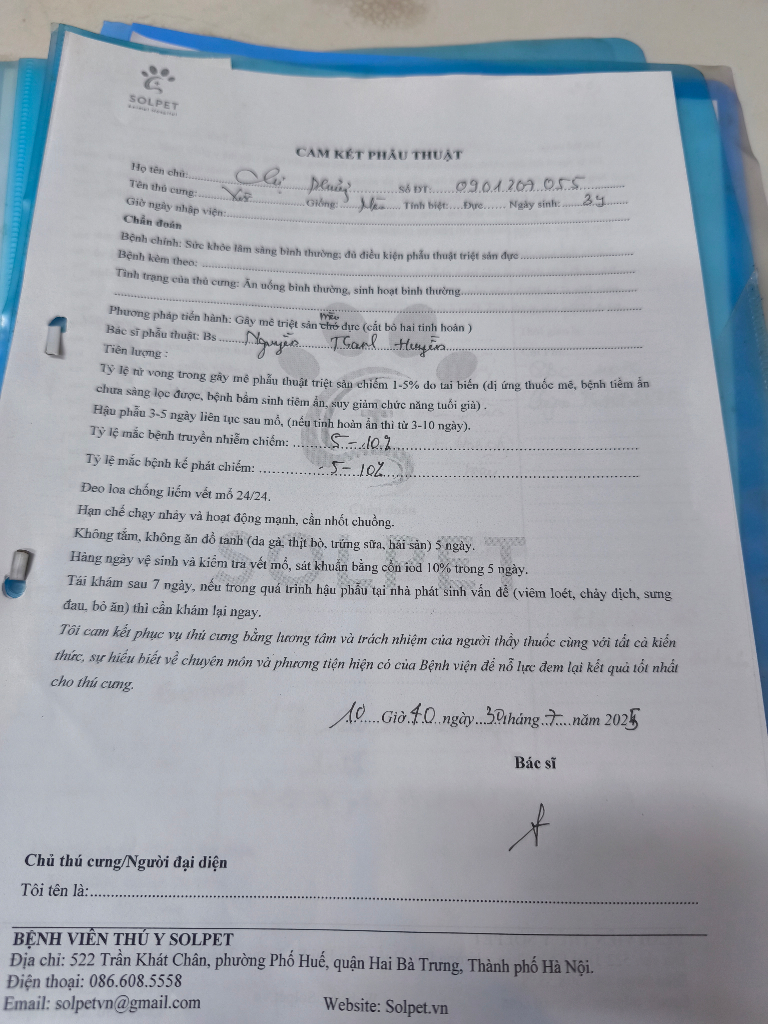 SOLPET
CAM KẾT PHẪU THUẬT
Họ tên chủ: Chị Phượng Số ĐT: 0901207055
Tên thú cưng: Giống: Mèo Tính biệt: Đực Ngày sinh: 3y
Giờ ngày nhập viện:
Chẩn đoán
Bệnh chính: Sức khỏe lâm sàng bình thường; đủ điều kiện phẫu thuật triệt sản đực
Bệnh kèm theo:
Tình trạng của thú cưng: Ăn uống bình thường, sinh hoạt bình thường
Phương pháp tiến hành: Gây mê triệt sản chó mèo đực (cắt bỏ hai tinh hoàn )
Bác sĩ phẫu thuật: Bs Nguyễn Thanh Huyền
Tiên lượng :
Tỷ lệ tử vong trong gây mê phẫu thuật triệt sản chiếm 1-5% do tai biến (dị ứng thuốc mê, bệnh tiềm ẩn
chưa sàng lọc được, bệnh bẩm sinh tiềm ẩn, suy giảm chức năng tuổi già) .
Hậu phẫu 3-5 ngày liên tục sau mổ, (nếu tinh hoàn ẩn thì từ 3-10 ngày).
Tỷ lệ mắc bệnh truyền nhiễm chiếm: 5-10%
Tỷ lệ mắc bệnh kế phát chiếm: 5-10%
Đeo loa chống liếm vết mổ 24/24.
Hạn chế chạy nhảy và hoạt động mạnh, cần nhốt chuồng.
Không tắm, không ăn đồ tanh (da gà, thịt bò, trứng sữa, hải sản) 5 ngày.
Hàng ngày vệ sinh và kiểm tra vết mổ, sát khuẩn bằng cồn iod 10% trong 5 ngày.
Tái khám sau 7 ngày, nếu trong quá trình hậu phẫu tại nhà phát sinh vấn đề (viêm loét, chảy dịch, sưng
đau, bỏ ăn) thì cần khám lại ngay.
Tôi cam kết phục vụ thú cưng bằng lương tâm và trách nhiệm của người thầy thuốc cùng với tất cả kiến
thức, sự hiểu biết về chuyên môn và phương tiện hiện có của Bệnh viện để nỗ lực đem lại kết quả tốt nhất
cho thú cưng.
10 Giờ 40 ngày 30 tháng 7 năm 2025
Bác sĩ
Chủ thú cưng/Người đại diện
Tôi tên là:
BỆNH VIÊN THÚ Y SOLPET
Địa chỉ: 522 Trần Khát Chân, phường Phố Huế, quận Hai Bà Trưng, Thành phố Hà Nội.
Điện thoại: 086.608.5558
Email: solpetvn@gmail.com Website: Solpet.vn